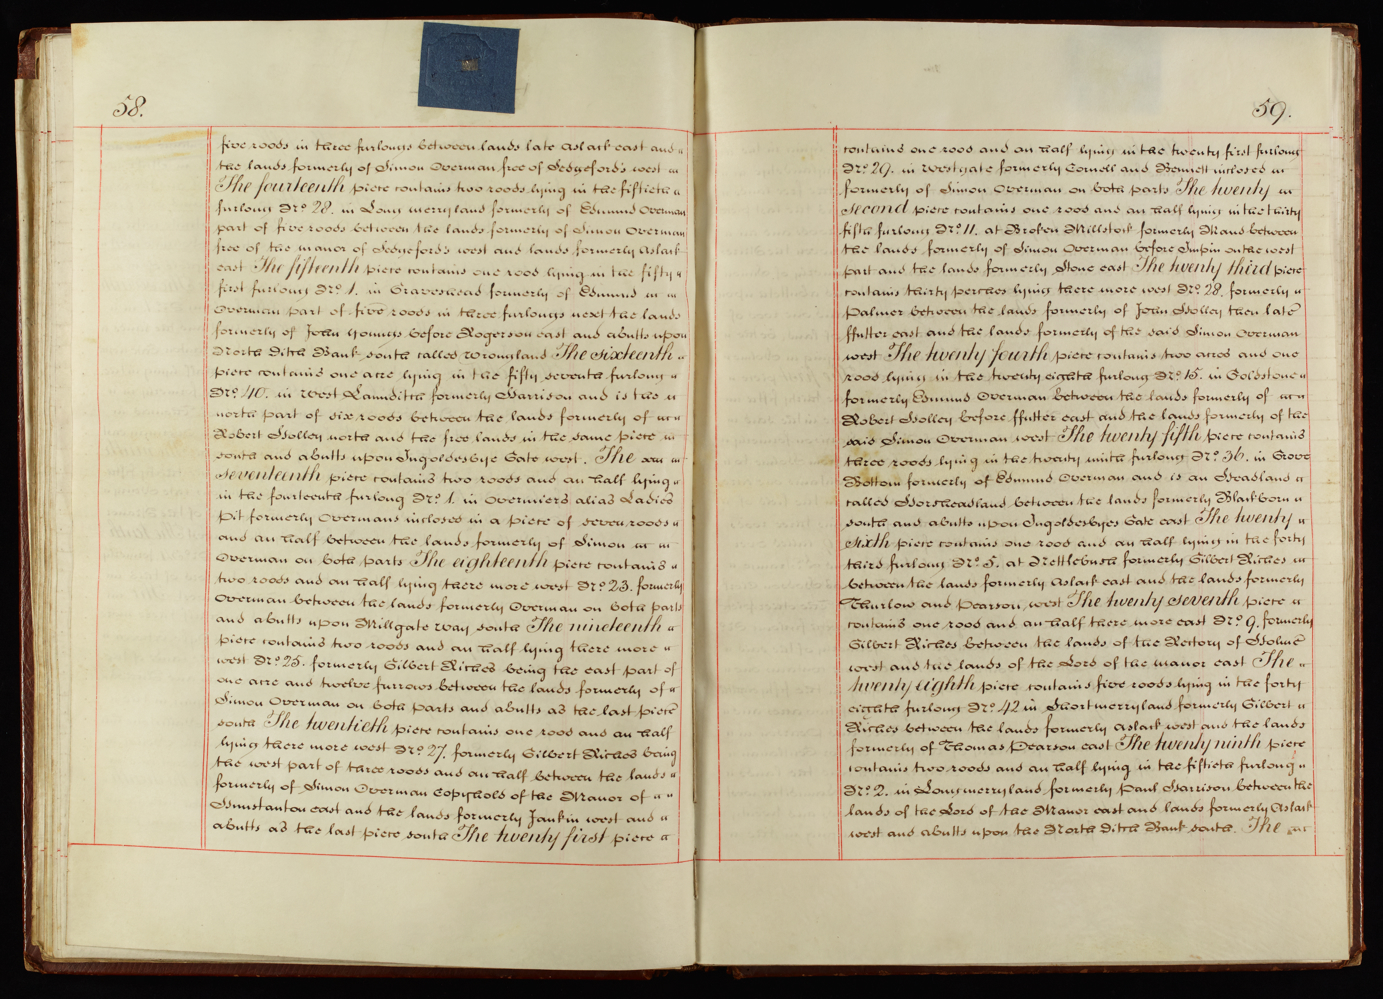 58.
five roods in three furlongs between lands late Aslack east and
the lands formerly of Simon Overman free of Sedgeford's west
The fourteenth piece contains two roods lying in the fiftieth
furlong No. 28. in Long merryland formerly of Edmund Overman
part of five roods between the lands formerly of Simon Overman
free of the manor of Sedgefords west and lands formerly Aslack
east The fifteenth piece contains one rood lying in the fifty
first furlong No. 1. in Graveshead formerly of Edmund
Overman part of five roods in three furlongs next the lands
formerly of John Youngs before Rogerson east and abutts upon
North Ditch Bank south called Wrongland The sixteenth
piece contains one acre lying in the fifty seventh furlong
No. 40. in West Lamditch formerly Harrison and is the
north part of six roods between the lands formerly of
Robert Holley north and the free lands in the same piece
south and abutts upon Ingoldesbye Gate west. The
seventeenth piece contains two roods and an half lying
in the fourteenth furlong No. 1. in Overmiers alias Ladies
Pit formerly Overmans inclosed in a piece of seven roods
and an half between the lands formerly of Simon
Overman on both parts The eighteenth piece contains
two roods and an half lying there more west No. 23. formerly
Overman between the lands formerly Overman on both parts
and abutts upon Millgate way south The nineteenth
piece contains two roods and an half lying there more
west No. 25. formerly Gilbert Riches being the east part of
one acre and twelve furrows between the lands formerly of
Simon Overman on both parts and abutts as the last piece
south The twentieth piece contains one rood and an half
lying there more west No. 27. formerly Gilbert Riches being
the west part of three roods and an half between the lands
formerly of Simon Overman Copyhold of the Manor of
Hunstanton east and the lands formerly Jankin west and
abutts as the last piece south The twenty first piece
59.
contains one rood and an half lying in the twenty first furlong
No. 29. in Westgate formerly Cornell and Bennett inclosed
formerly of Simon Overman on both parts The twenty
second piece contains one rood and an half lying in the thirty
fifth furlong No. 11. at Broken Millstok formerly Mand between
the lands formerly of Simon Overman before Impin on the west
part and the lands formerly Stone east The twenty third piece
contains thirty perches lying there more west No. 28. formerly
Palmer between the lands formerly of John Holley then late
ffutter east and the lands formerly of the said Simon Overman
west The twenty fourth piece contains two acres and one
rood lying in the twenty eighth furlong No. 15. in Goldstone
formerly Edmund Overman between the lands formerly of
Robert Holley before ffutter east and the lands formerly of the
said Simon Overman west The twenty fifth piece contains
three roods lying in the twenty ninth furlong No. 36. in Grove
Bottom formerly of Edmund Overman and is an Headland
called Horsheadland between the lands formerly Blackborn
south and abutts upon Ingoldesbyes Gate east The twenty
sixth piece contains one rood and an half lying in the forty
third furlong No. 5. at Nettlebush formerly Gilbert Riches
between the lands formerly Aslack east and the lands formerly
Thurlow and Pearson west The twenty seventh piece
contains one rood and an half there more east No. 9. formerly
Gilbert Riches between the lands of the Rectory of Holme
west and the lands of the Lord of the manor east The
twenty eighth piece contains five roods lying in the forty
eighth furlong No. 42 in Shortmerryland formerly Gilbert
Riches between the lands formerly Aslack west and the lands
formerly of Thomas Pearson east The twenty ninth piece
contains two roods and an half lying in the fiftieth furlong
No. 2. in Longmerryland formerly Paul Harrison between the
lands of the Lord of the Manor east and lands formerly Aslack
west and abutts upon the North Ditch Bank south. The